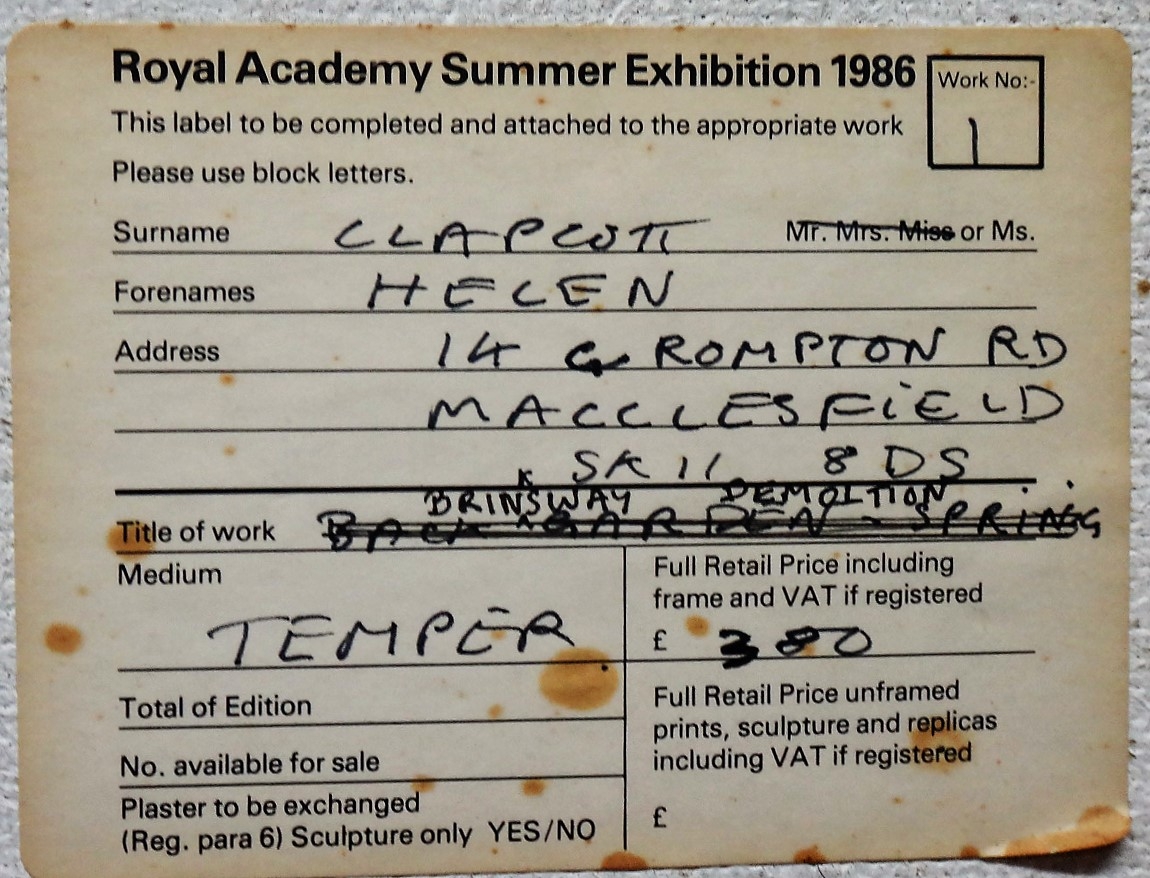 Royal Academy Summer Exhibition 1986
Work No:-
1
This label to be completed and attached to the appropriate work
Please use block letters.
Surname CLAPCOTT Mr. Mrs. Miss or Ms.
Forenames HELEN
Address 14 CROMPTON RD
MACCLESFIELD
SK11 8DS
BRINKSWAY DEMOLTION
Title of work BACK GARDEN - SPRING
Medium
TEMPER
Full Retail Price including
frame and VAT if registered
£ 380
Total of Edition
No. available for sale
Plaster to be exchanged
(Reg. para 6) Sculpture only YES/NO
Full Retail Price unframed
prints, sculpture and replicas
including VAT if registered
£